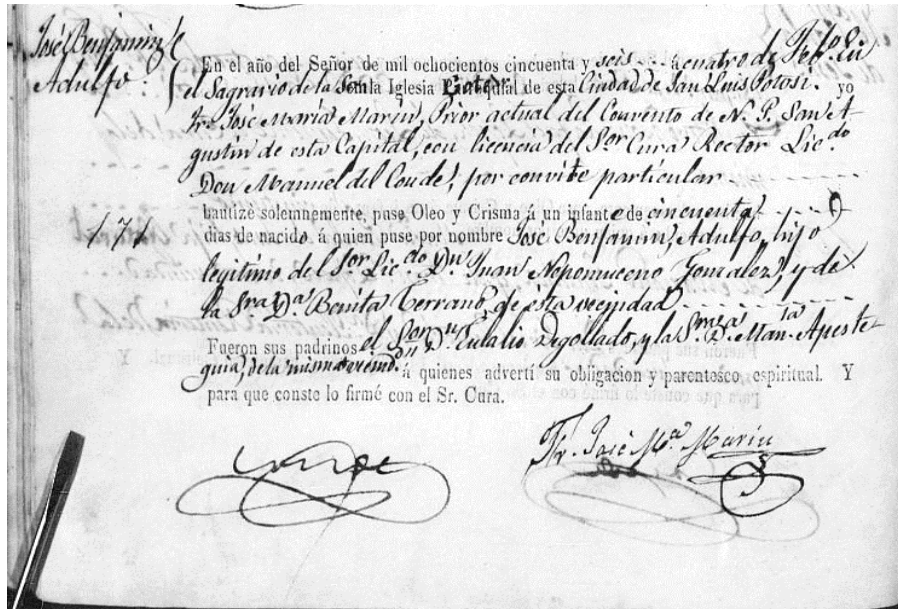 José Benjamin,
Adulfo.
En el año del Señor de mil ochocientos cincuenta y seis á cuatro de Febo. En
el Sagrario de la Santa Iglesia Parroquial de esta Ciudad de San Luis Potosí. yo
Fr. José María Marin, Prior actual del Convento de N. P. San A-
gustin de esta Capital, con licencia del Sor Cura Rector Lic.do
Don Manuel del Conde, por convite particular
bautizé solemnemente, puse Oleo y Crisma á un infante de cincuenta
dias de nacido á quien puse por nombre José Benjamin, Adulfo, hijo
legitimo del Sr. Lic.do Dn Juan Nepomuceno Gonzalez, y de
la Sra. Da. Benita Serrano, de esta vecindad
Fueron sus padrinos el Sor Dn Eulalio Degollado, y la Sra. Da. Man.la Apeste-
guia, de la misma vecind.d á quienes advertí su obligacion y parentesco espiritual. Y
para que conste lo firmé con el Sr. Cura.
Fr. José Ma. Marin